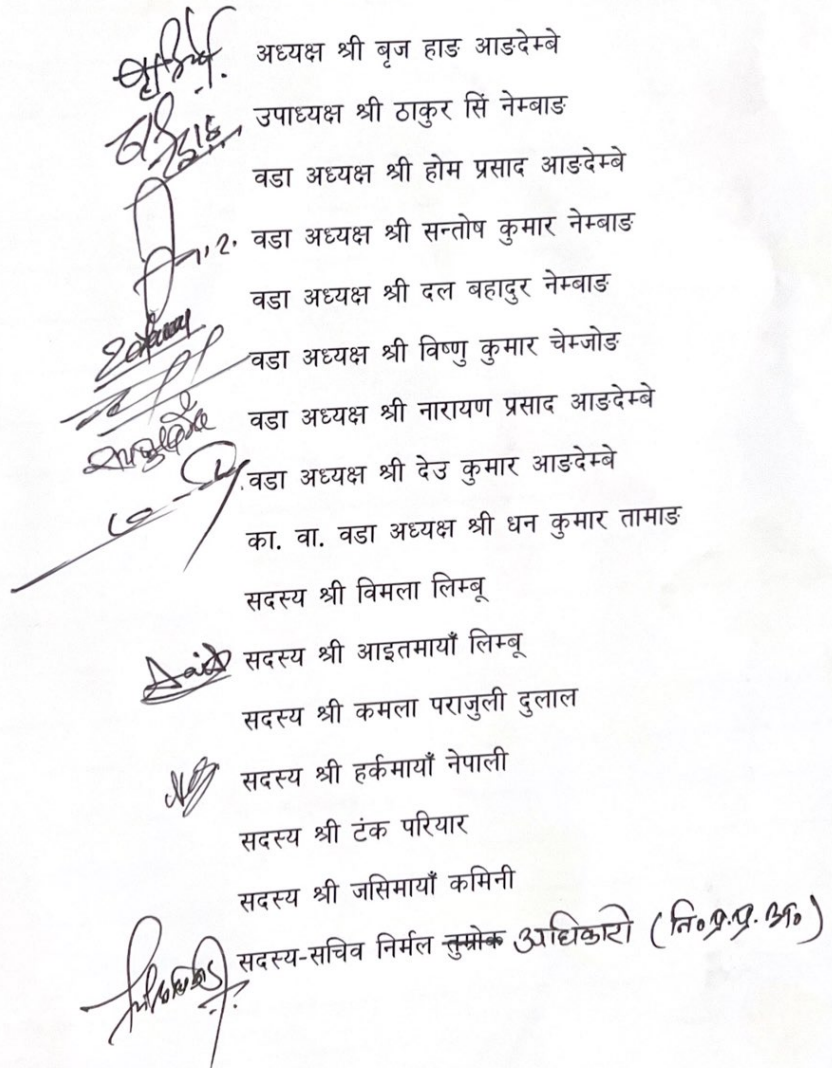 अध्यक्ष श्री बृज हाङ आङदेम्बे
उपाध्यक्ष श्री ठाकुर सिं नेम्बाङ
वडा अध्यक्ष श्री होम प्रसाद आङदेम्बे
वडा अध्यक्ष श्री सन्तोष कुमार नेम्बाङ
वडा अध्यक्ष श्री दल बहादुर नेम्बाङ
वडा अध्यक्ष श्री विष्णु कुमार चेम्जोङ
वडा अध्यक्ष श्री नारायण प्रसाद आङदेम्बे
वडा अध्यक्ष श्री देउ कुमार आङदेम्बे
का. वा. वडा अध्यक्ष श्री धन कुमार तामाङ
सदस्य श्री विमला लिम्बू
सदस्य श्री आइतमायाँ लिम्बू
सदस्य श्री कमला पराजुली दुलाल
सदस्य श्री हर्कमायाँ नेपाली
सदस्य श्री टंक परियार
सदस्य श्री जसिमायाँ कमिनी
सदस्य-सचिव निर्मल तुम्रोक अधिकारी (नि०प्र.प्र.अ०)